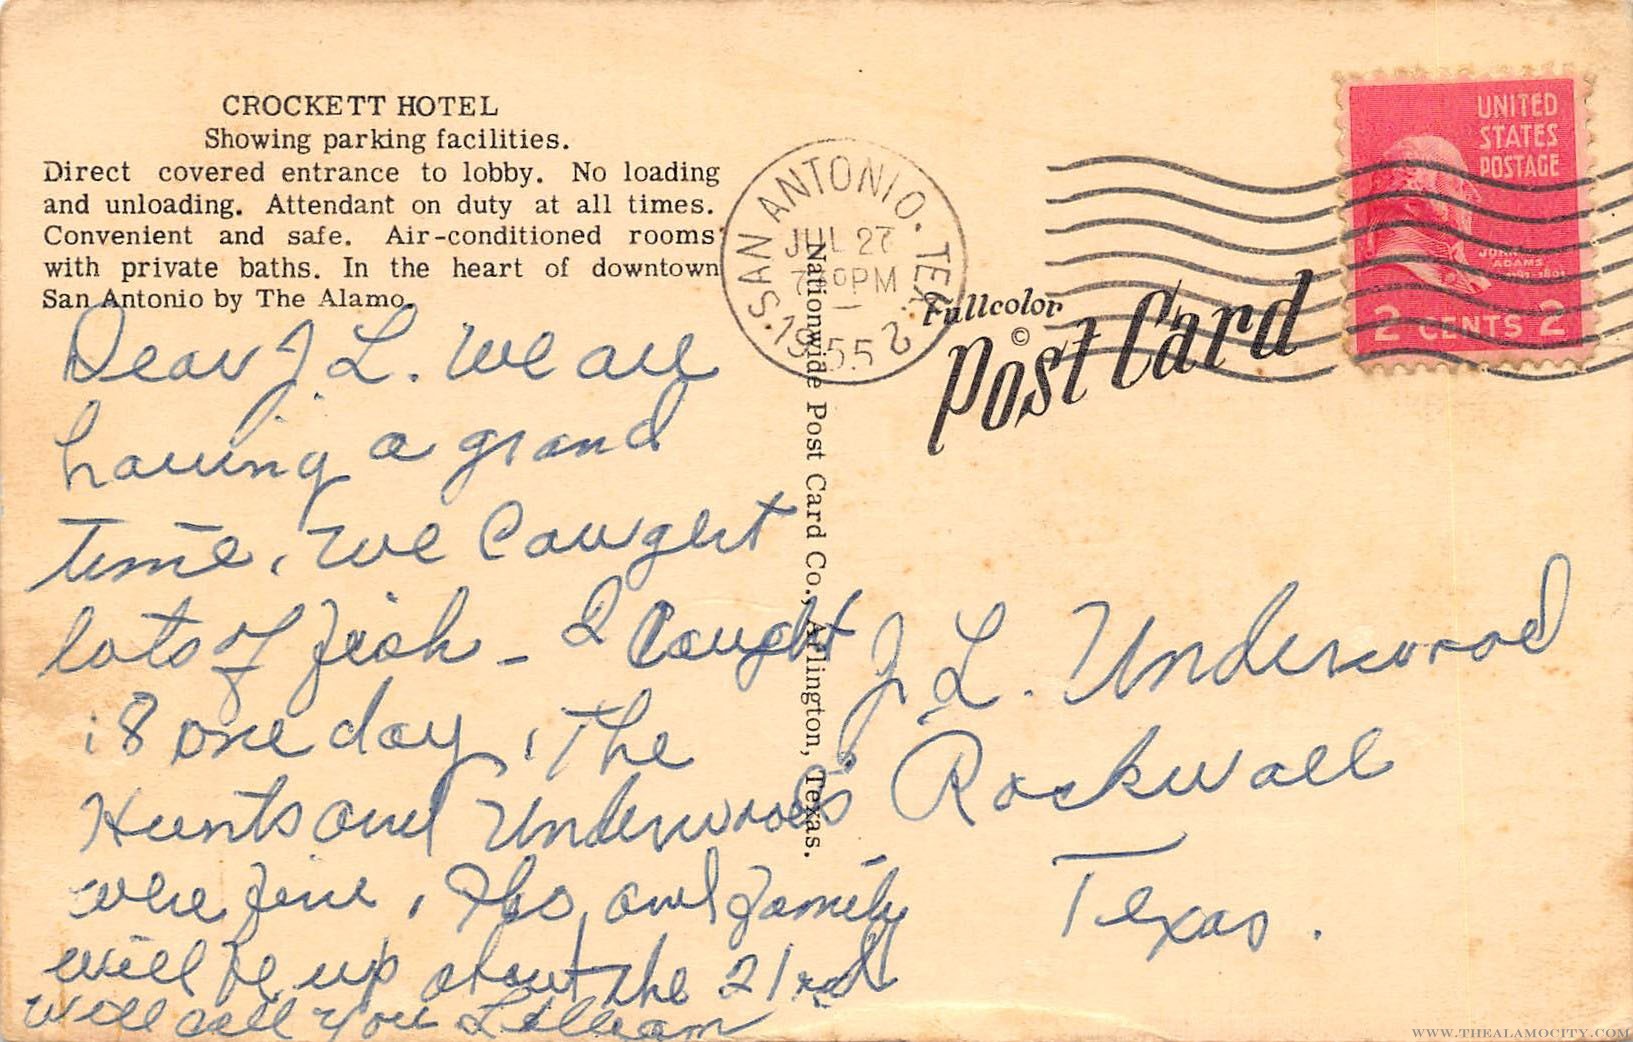 CROCKETT HOTEL
Showing parking facilities.
Direct covered entrance to lobby. No loading
and unloading. Attendant on duty at all times.
Convenient and safe. Air-conditioned rooms
with private baths. In the heart of downtown
San Antonio by The Alamo.
Dear J. L. We are
having a grand
time, we caught
lots of fish - I caught
18 one day, The
Hunts and Underwoods
were fine, and family
will be up about the 21rd
will call you Lilliam
SAN ANTONIO, TEX.
JUL 27
PM
1955
2
Nationwide Post Card Co., Arlington, Texas.
Fullcolor
©
Post Card
UNITED
STATES
POSTAGE
JOHN
ADAMS
1797-1801
2 CENTS 2
J. L. Underwood
Rockwall
Texas.
WWW.THEALAMOCITY.COM